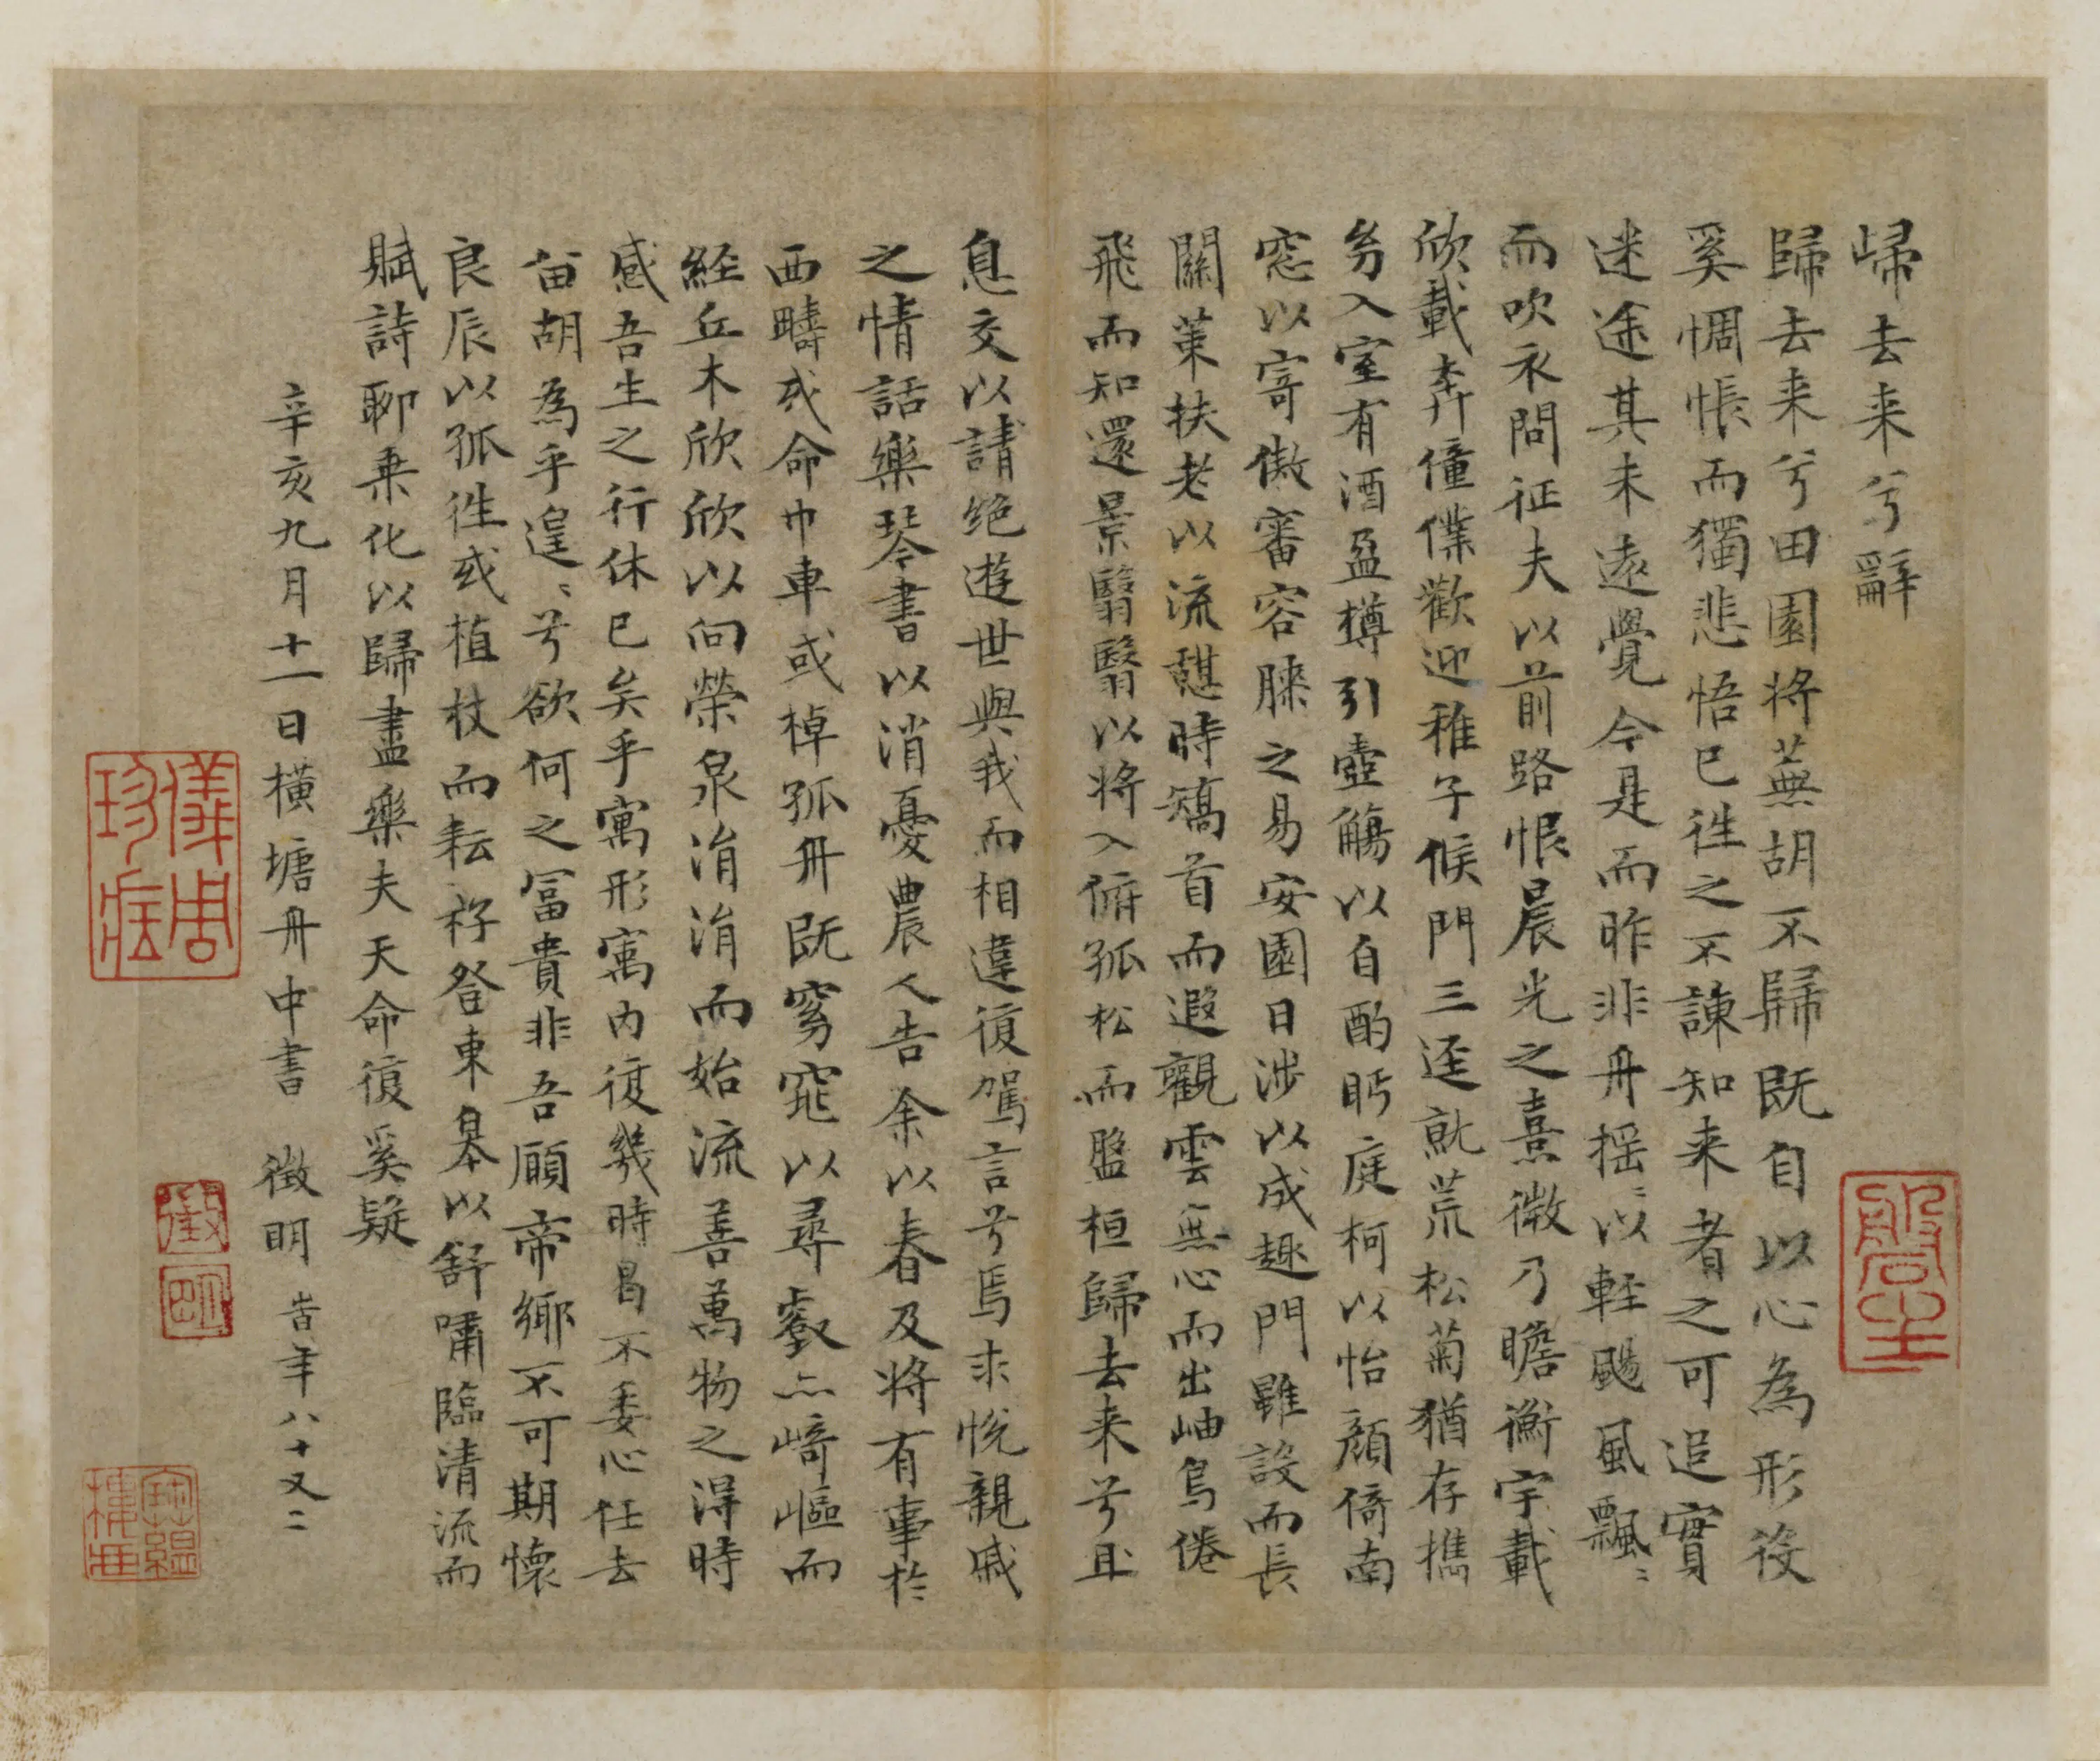 歸去来兮辭
歸去来兮田園将蕪胡不歸既自以心為形役
奚惆悵而獨悲悟已往之不諫知来者之可追實
迷途其未遠覺今是而昨非舟揺〻以軽颺風飄〻
而吹衣問征夫以前路恨晨光之熹微乃瞻衡宇載
欣載奔僮僕歡迎稚子候門三逕就荒松菊猶存携
㓜入室有酒盈樽引壺觴以自酌眄庭柯以怡顔倚南
窓以寄傲審容膝之易安園日涉以成趣門雖設而長
關策扶老以流憩時矯首而遐觀雲無心而出岫鳥倦
飛而知還景翳翳以将入俯孤松而盤桓歸去来兮且
息交以請絶遊世與我而相違復駕言兮焉求悅親戚
之情話樂琴書以消憂農人告余以春及将有事於
西疇或命巾車或棹孤舟既窈窕以尋壑亦崎嶇而
経丘木欣欣以向榮泉涓涓而始流善萬物之得時
感吾生之行休已矣乎寓形寓内復幾時曷不委心任去
留胡為乎遑〻兮欲何之冨貴非吾願帝鄉不可期懐
良辰以孤往或植杖而耘耔登東皋以舒嘯臨清流而
賦詩聊乗化以歸盡樂夫天命復奚疑
辛亥九月十一日橫塘舟中書 徵明 旹年八十又二
儀周珍藏
徵
明